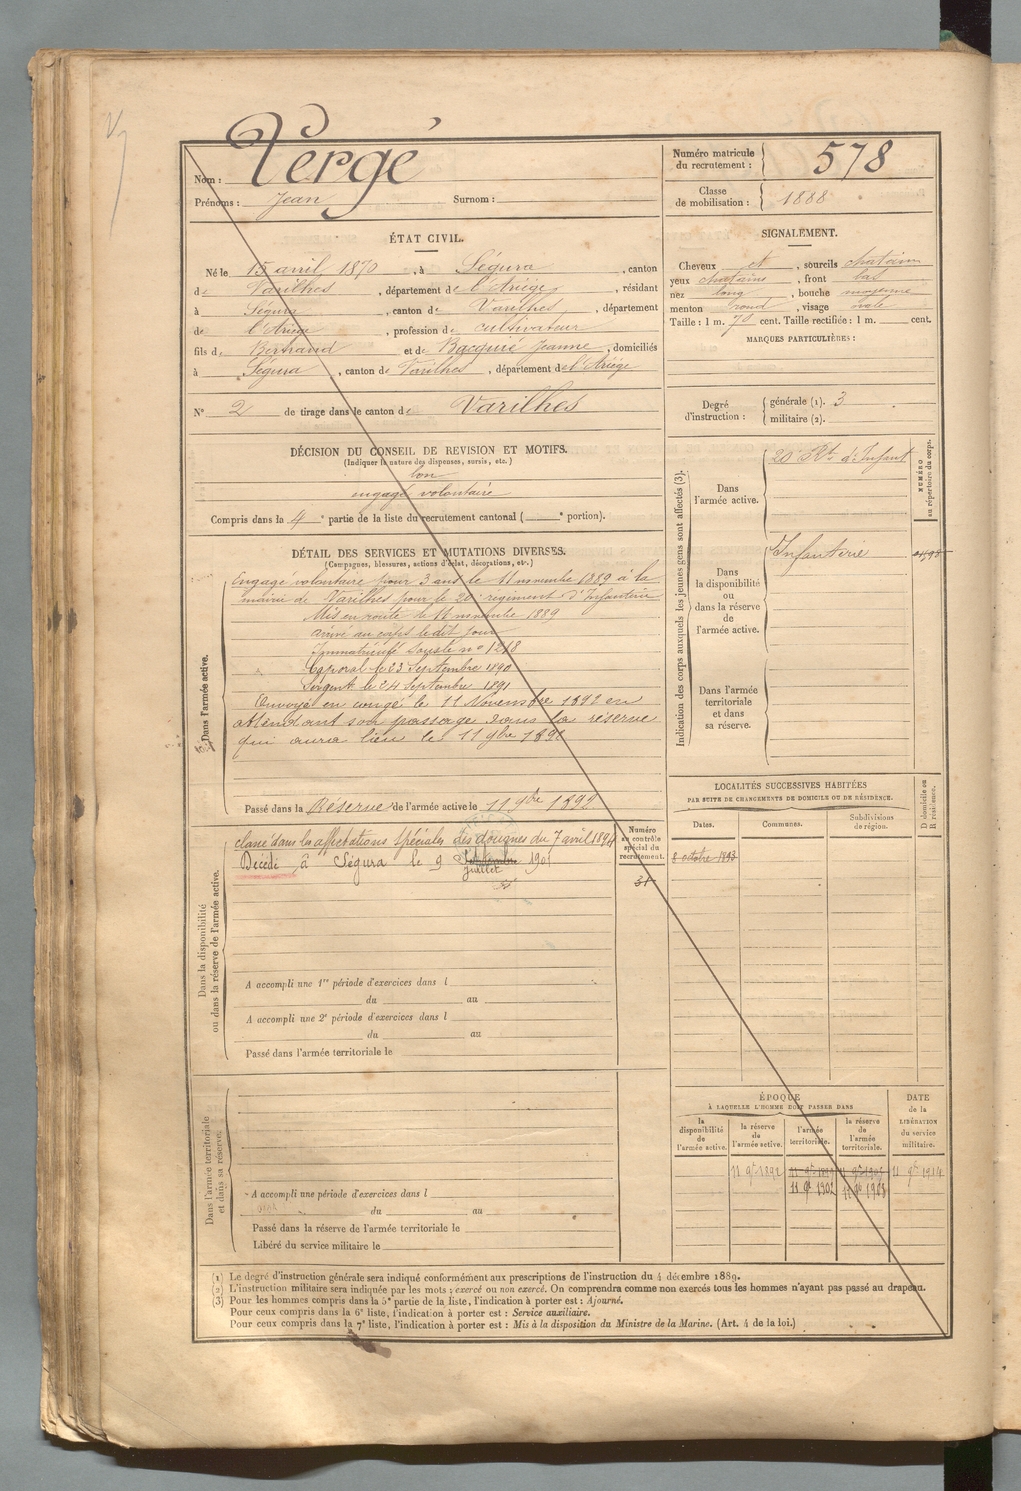 Nom : Vergé
Prénoms : Jean Surnom :
Numéro matricule du recrutement : 578
Classe de mobilisation : 1888
ÉTAT CIVIL.
Né le 15 avril 1870, à Ségura, canton
de Varilhes, département de l'Ariège, résidant
à Ségura, canton de Varilhes, département
de l'Ariège, profession de cultivateur
fils de Bertrand et de Bacquié Jeanne, domiciliés
à Ségura, canton de Varilhes, département de l'Ariège
N° 2 de tirage dans le canton de Varilhes
SIGNALEMENT.
Cheveux et, sourcils chatain
yeux chatains, front bas
nez long, bouche moyenne
menton rond, visage ovale
Taille : 1 m. 70 cent. Taille rectifiée : 1 m. cent.
MARQUES PARTICULIÈRES :
Degré d'instruction : générale (1). 3
militaire (2).
DÉCISION DU CONSEIL DE REVISION ET MOTIFS.
(Indiquer la nature des dispenses, sursis, etc.)
bon
engagé volontaire
Compris dans la 4e partie de la liste du recrutement cantonal ( e portion).
DÉTAIL DES SERVICES ET MUTATIONS DIVERSES.
(Campagnes, blessures, actions d'éclat, décorations, etc.)
Dans l'armée active.
Engagé volontaire pour 3 ans le 11 novembre 1889 à la
mairie de Varilhes pour le 20e régiment d'Infanterie
Mis en route le 11 novembre 1889
arrivé au corps le dit jour
Immatriculé sous le n° 1218
Caporal le 23 Septembre 1890
Sergent le 24 Septembre 1891
Envoyé en congé le 11 Novembre 1892 en
attendant son passage dans la réserve
qui aura lieu le 11 9bre 1892
Passé dans la Réserve de l'armée active le 11 9bre 1892
Dans la disponibilité ou dans la réserve de l'armée active.
classé dans les affectations spéciales des douanes du 7 avril 1894
Décédé à Ségura le 9 Septembre juillet 1901
Numéro au contrôle spécial du recrutement.
31
A accompli une 1re période d'exercices dans l
du au
A accompli une 2e période d'exercices dans l
du au
Passé dans l'armée territoriale le
Dans l'armée territoriale et dans sa réserve.
A accompli une période d'exercices dans l
du au
Passé dans la réserve de l'armée territoriale le
Libéré du service militaire le
Indication des corps auxquels les jeunes gens sont affectés (3).
NUMÉRO au répertoire du corps.
Dans l'armée active.
20e Rt d'Infant
Dans la disponibilité ou dans la réserve de l'armée active.
Infanterie
Dans l'armée territoriale et dans sa réserve.
LOCALITÉS SUCCESSIVES HABITÉES
PAR SUITE DE CHANGEMENTS DE DOMICILE OU DE RÉSIDENCE.
Dates. Communes. Subdivisions de région. D domicile ou R résidence.
8 octobre 1893
ÉPOQUE
À LAQUELLE L'HOMME DOIT PASSER DANS
DATE de la LIBÉRATION du service militaire.
la disponibilité de l'armée active. la réserve de l'armée active. l'armée territoriale. la réserve de l'armée territoriale.
11 9bre 1892 11 9bre 1914
11 9bre 1902 11 9bre 1908
(1) Le degré d'instruction générale sera indiqué conformément aux prescriptions de l'instruction du 4 décembre 1889.
(2) L'instruction militaire sera indiquée par les mots : exercé ou non exercé. On comprendra comme non exercés tous les hommes n'ayant pas passé au drapeau.
(3) Pour les hommes compris dans la 5e partie de la liste, l'indication à porter est : Ajourné.
Pour ceux compris dans la 6e liste, l'indication à porter est : Service auxiliaire.
Pour ceux compris dans la 7e liste, l'indication à porter est : Mis à la disposition du Ministre de la Marine. (Art. 4 de la loi.)